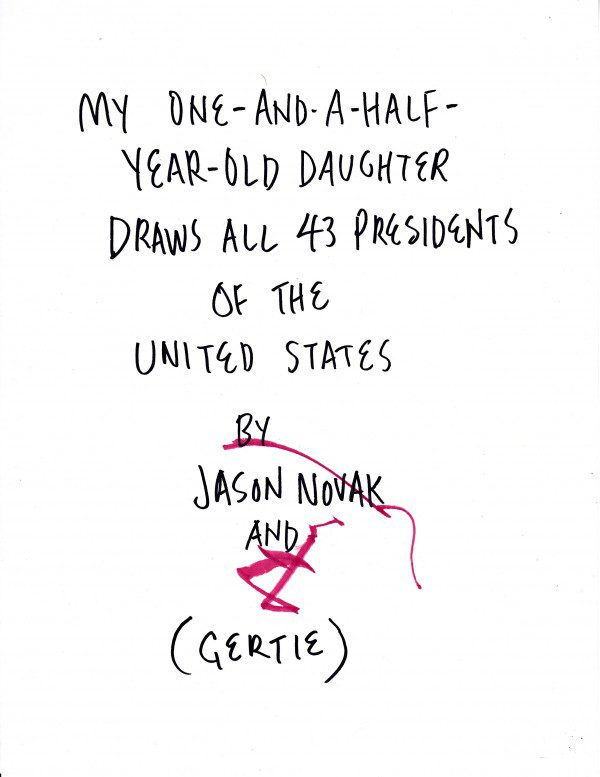 MY ONE-AND-A-HALF-
YEAR-OLD DAUGHTER
DRAWS ALL 43 PRESIDENTS
OF THE
UNITED STATES
BY
JASON NOVAK
AND
(GERTIE)